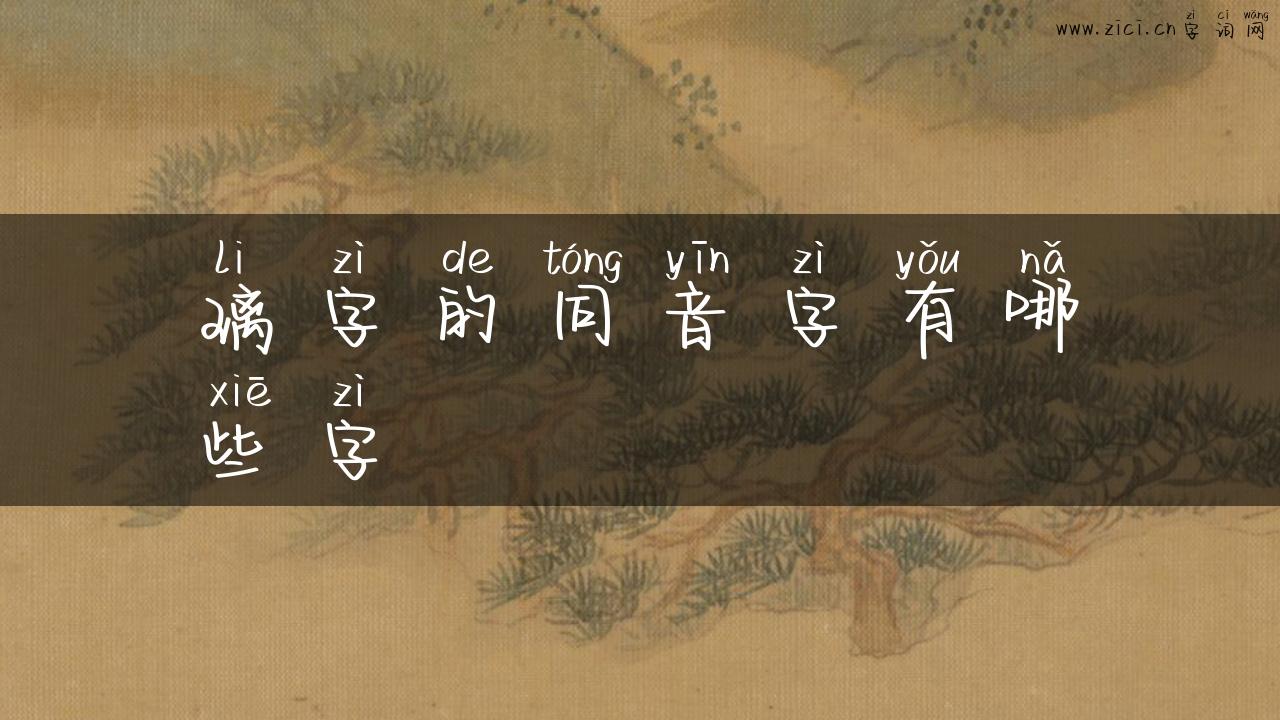 www.zīcī.cn zì cí wǎng
字词网
li zì de tóng yīn zì yǒu nǎ
璃字的同音字有哪
xiē zì
些字